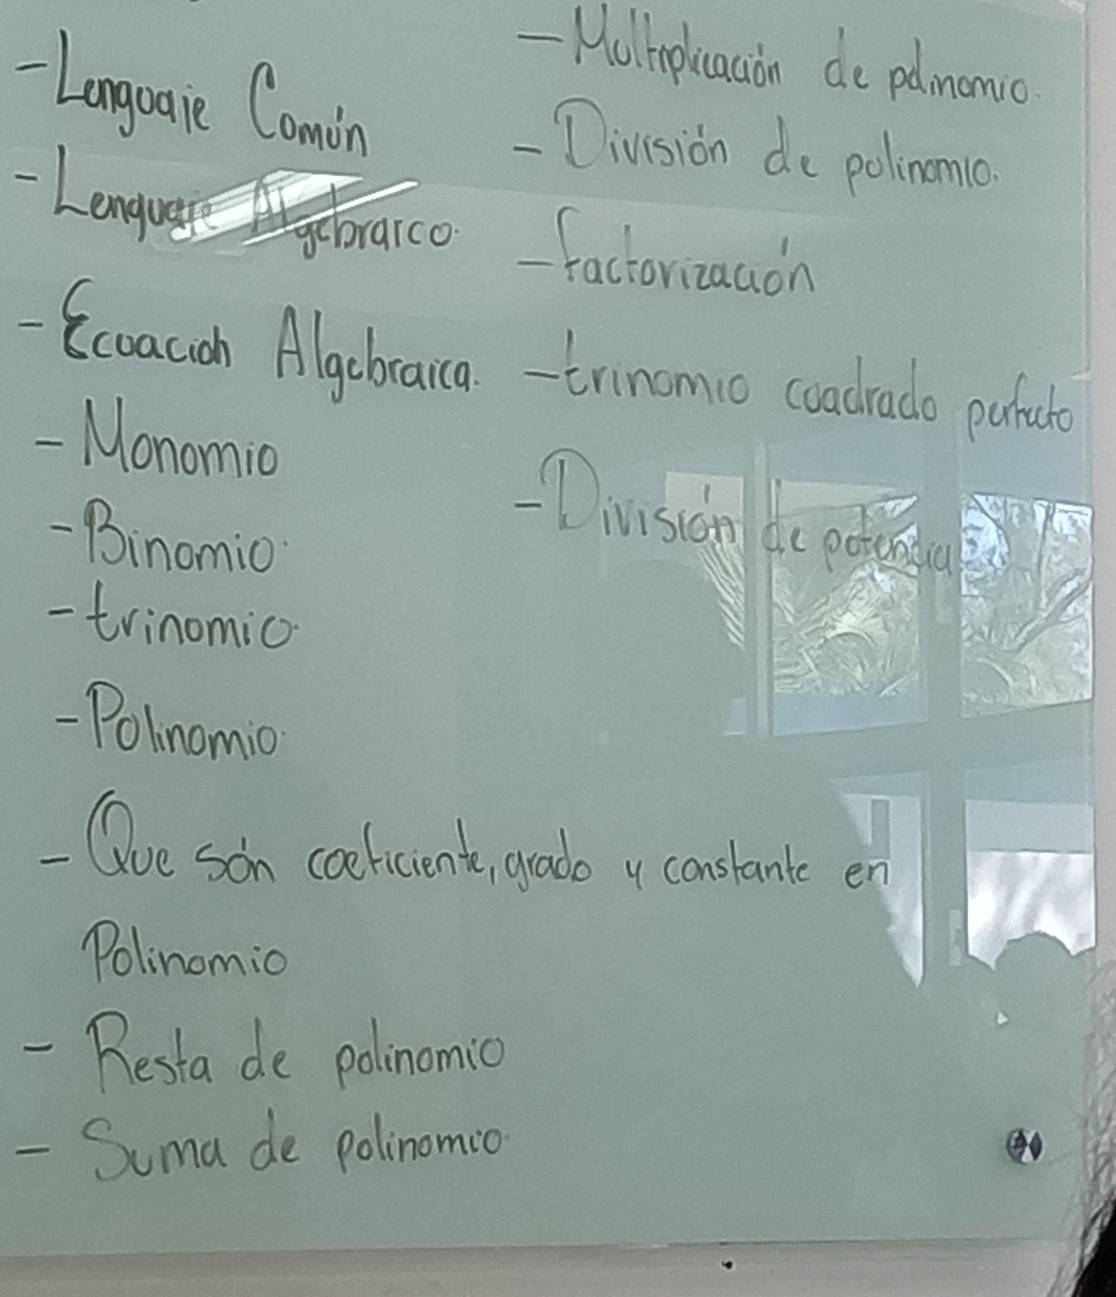 - Lenguaje Común
- Lenguaje Algebraico.
- Ecuación Algebraica.
- Monomio
- Binomio.
- trinomio.
- Polinomio.
- Que són coeficiente, grado y constante en
Polinomio
- Resta de polinomio
- Suma de polinomio.
- Multiplicación de polinomio.
- División de polinomio.
- factorización
- trinomio cuadrado perfecto
- División de potencia